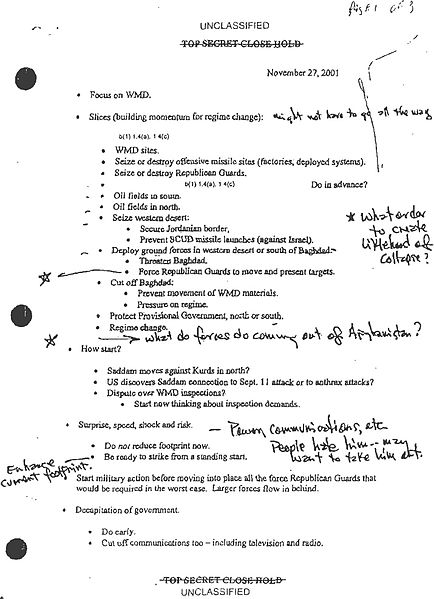 UNCLASSIFIED
TOP SECRET CLOSE HOLD
November 27, 2001
• Focus on WMD.
• Slices (building momentum for regime change): might not have to go all the way
b(1) 1.4(a), 1.4(c)
• WMD sites.
• Seize or destroy offensive missile sites (factories, deployed systems).
• Seize or destroy Republican Guards.
b(1) 1.4(a), 1.4(c) Do in advance?
• Oil fields in south.
• Oil fields in north.
• Seize western desert:
• Secure Jordanian border,
• Prevent SCUD missile launches (against Israel).
• Deploy ground forces in western desert or south of Baghdad:
• Threaten Baghdad.
• Force Republican Guards to move and present targets.
• Cut off Baghdad:
• Prevent movement of WMD materials.
• Pressure on regime.
• Protect Provisional Government, north or south.
• Regime change.
what order
to create
likelihood of
collapse?
what do forces do coming out of Afghanistan?
• How start?
• Saddam moves against Kurds in north?
• US discovers Saddam connection to Sept. 11 attack or to anthrax attacks?
• Dispute over WMD inspections?
• Start now thinking about inspection demands.
• Surprise, speed, shock and risk. – Power, communications, etc
• Do not reduce footprint now.
• Be ready to strike from a standing start.
People hate him -- may
want to take him out.
Enhance
current footprint.
Start military action before moving into place all the force Republican Guards that
would be required in the worst case. Larger forces flow in behind.
• Decapitation of government.
• Do early.
• Cut off communications too – including television and radio.
TOP SECRET CLOSE HOLD
UNCLASSIFIED